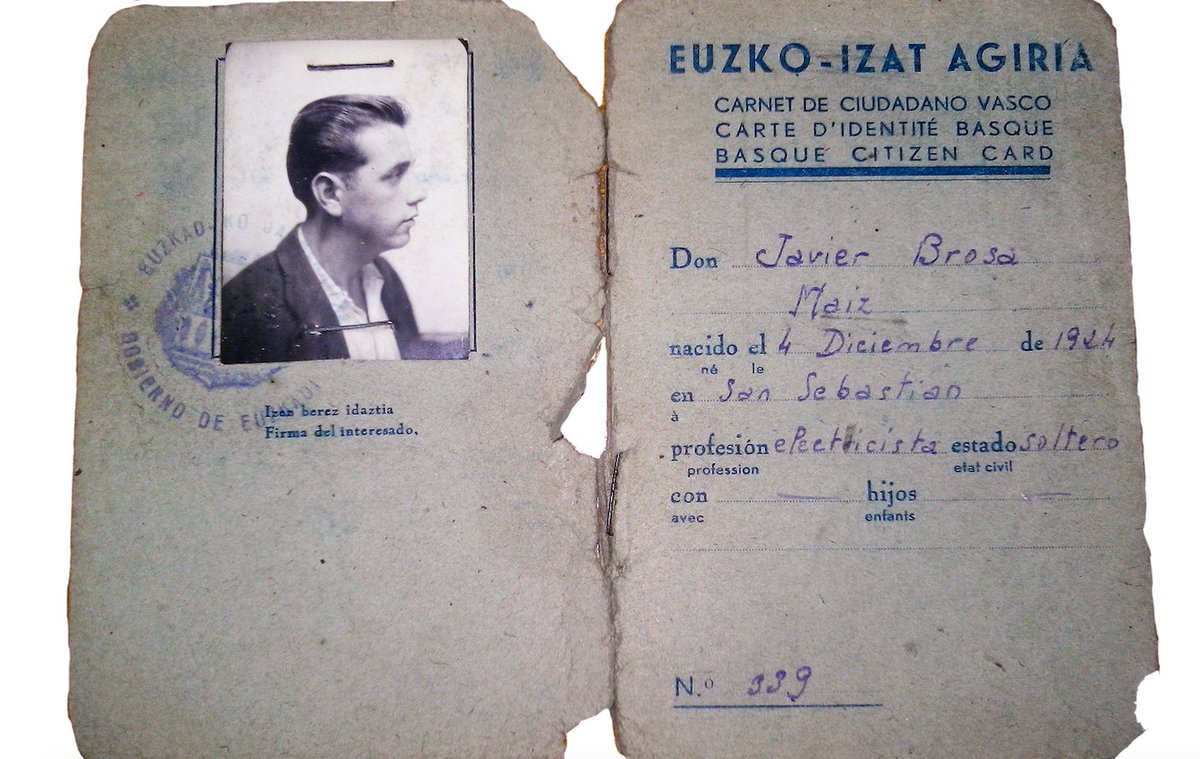 GOBIERNO DE EUZKADI
Izen berez idaztia
Firma del interesado.
EUZKO-IZAT AGIRIA
CARNET DE CIUDADANO VASCO
CARTE D'IDENTITÉ BASQUE
BASQUE CITIZEN CARD
Don Javier Brosa
Maiz
nacido el 4 Diciembre de 1924
né le
en San Sebastián
à
profesión electricista estado soltero
profession etat civil
con — hijos —
avec enfants
N.º 339